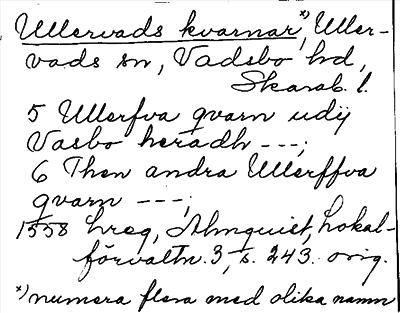 Ullervads kvarnar *), Uller-
vads sn, Vadsbo hd,
Skarab. l.
5 Ullerfva qvarn udij
Vasbo herådh ---;
6 Then andra Ullerffva
qvarn ---;
1558 hreg, Almquist, Lokal-
förvaltn. 3, s. 243. orig.
*) numera flera med olika namn